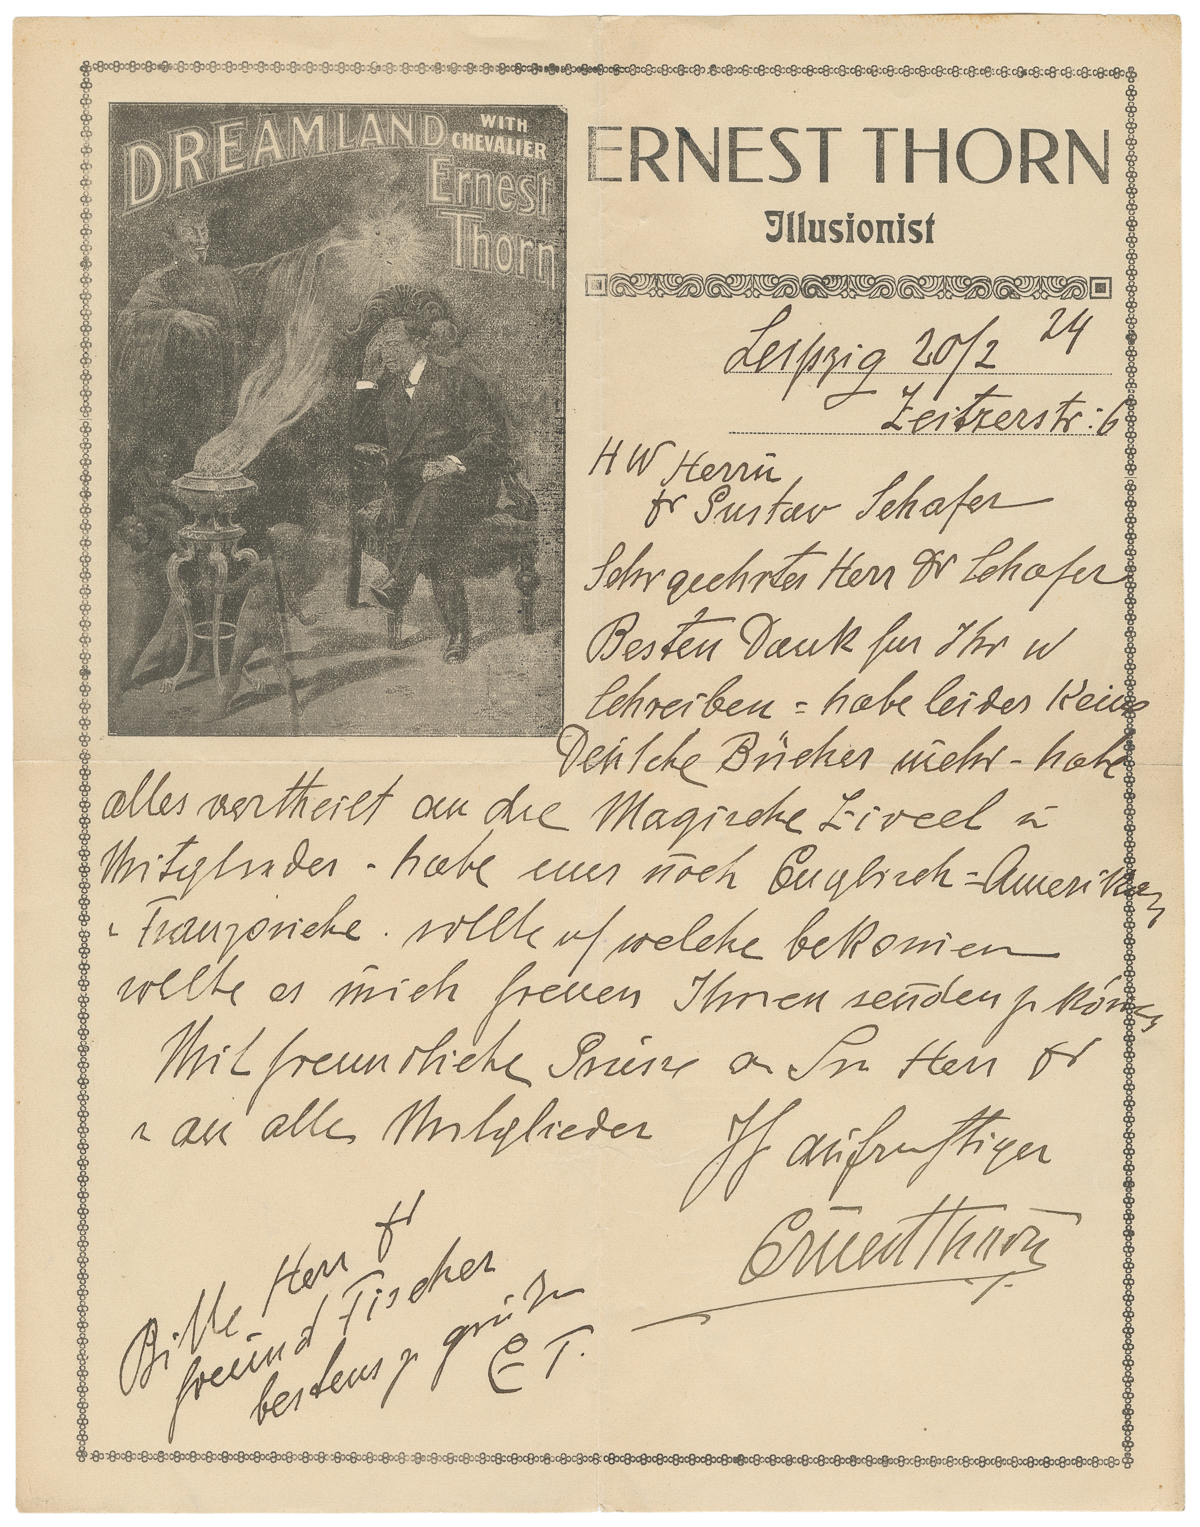 DREAMLAND WITH
CHEVALIER
Ernest
Thorn
ERNEST THORN
Illusionist
Leipzig 20/2 24
Zeitzerstr: 6
H W Herrn
Dr Gustav Schäfer
Sehr geehrter Herr Dr Schafer
Besten Dank fur Ihr w
Schreiben = habe leider Keine
Deutsche Bücher mehr - habe
alles vertheilt an die Magische Zirkel u
Mitglieder - habe nur noch Englisch = Amerikan
u Franzosische . sollte welche bekomen
sollte es mich freuen Ihnen senden z könen
Mit freundliche Grüsse an Herr Dr
u an alle Mitglieder
Ihr aufrichtiger
Ernest Thorn
Bitte Herr Dr
freund Fischer
bestens z grüßen
E T.